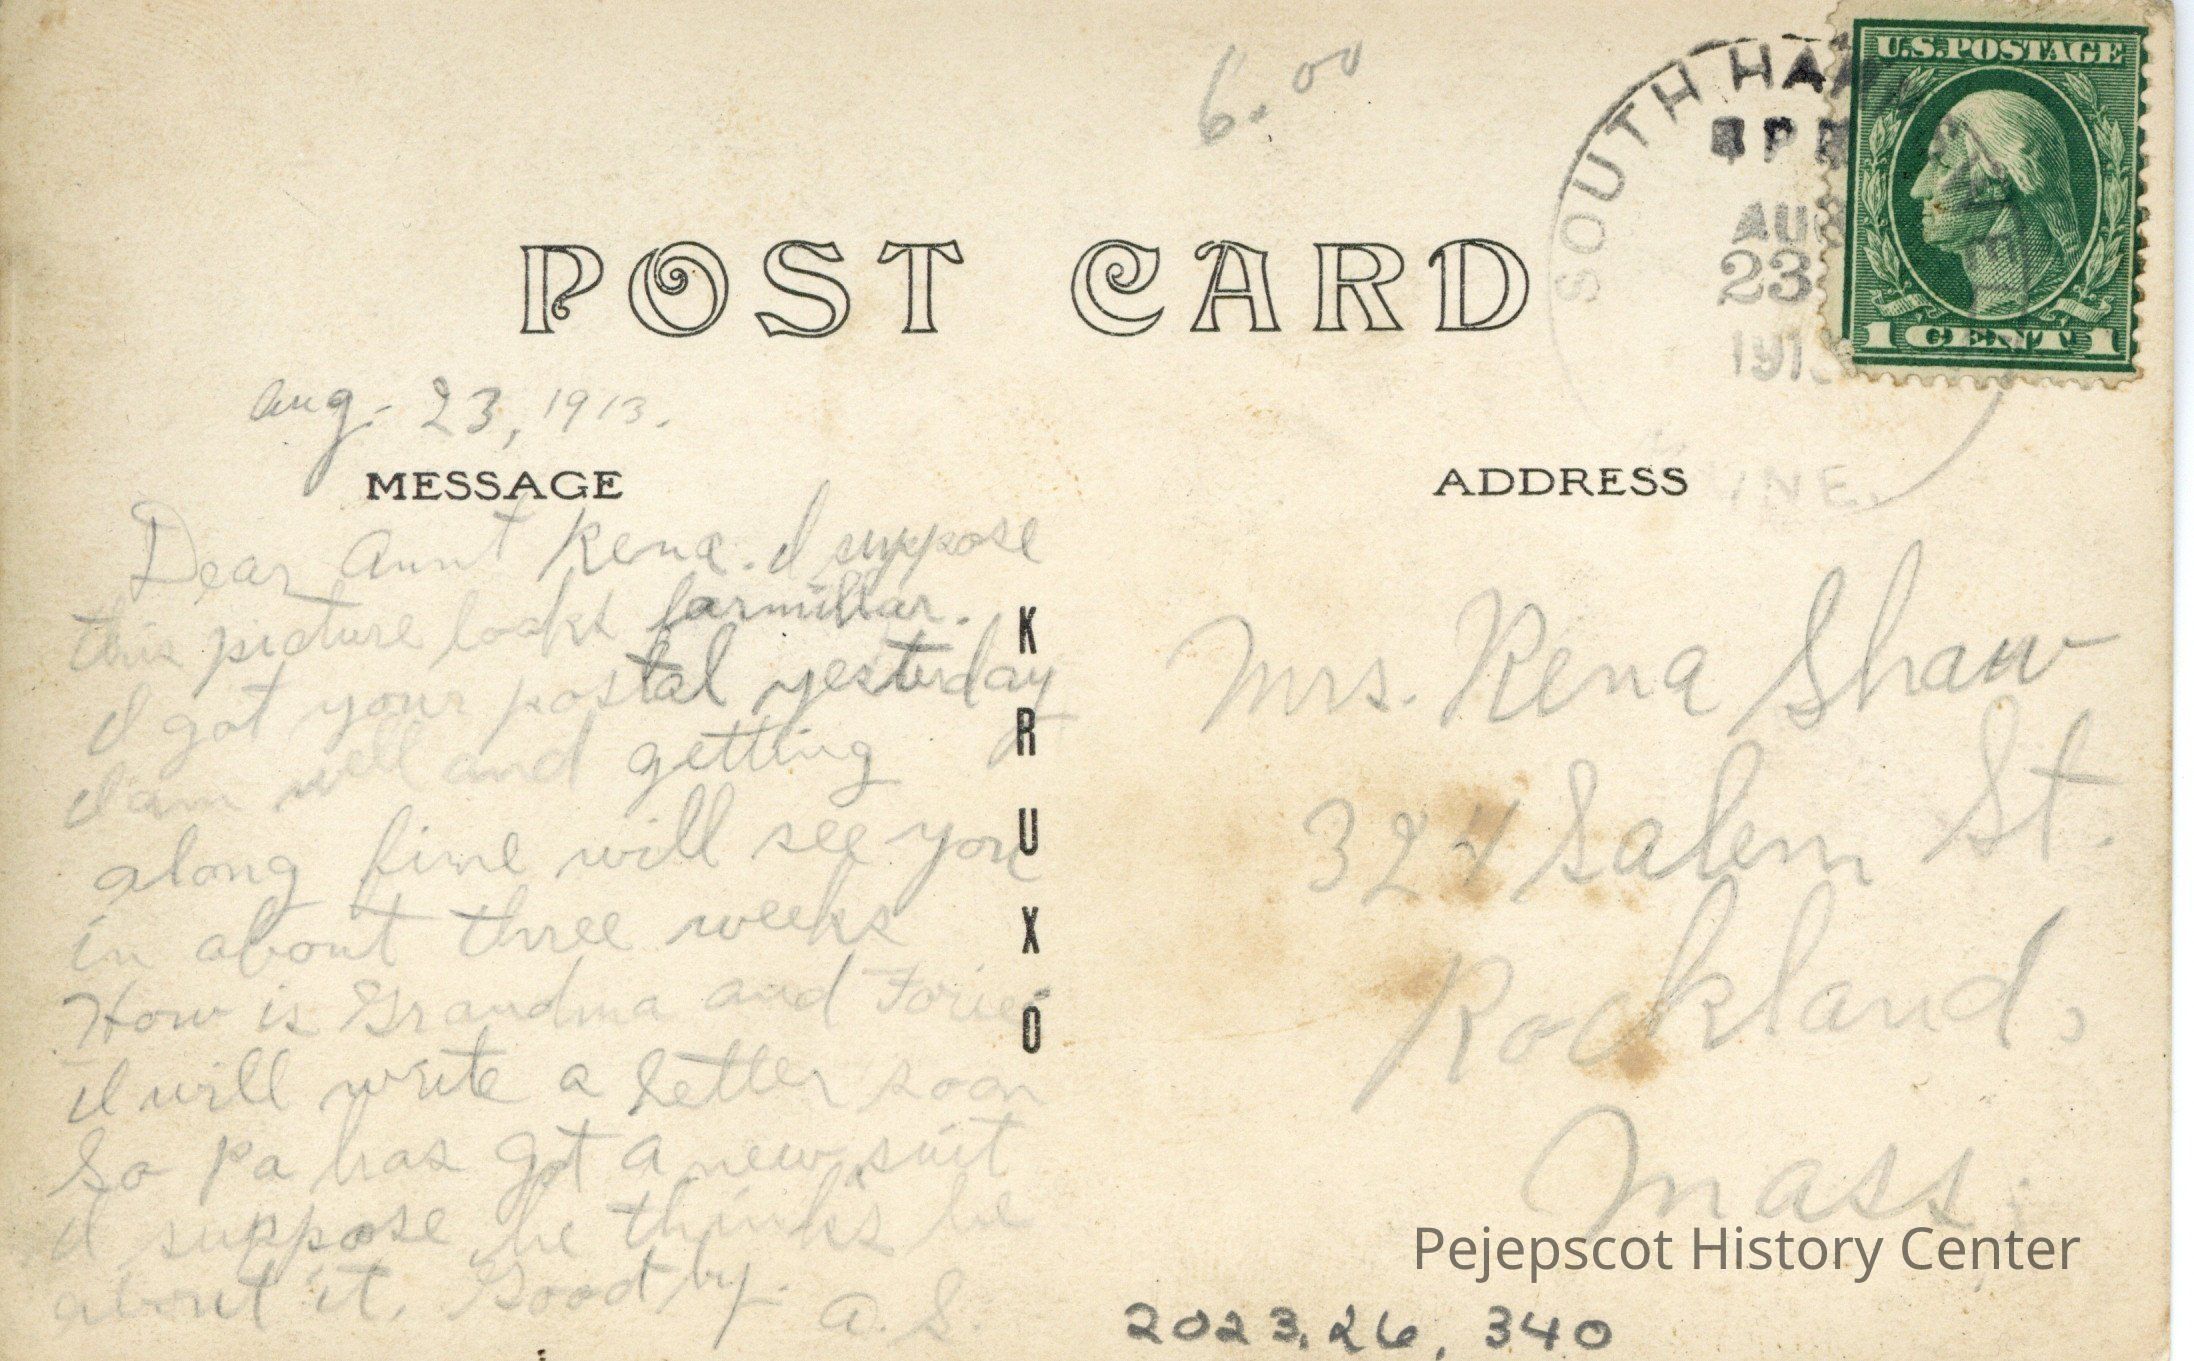 6.00
SOUTH HA
AUG
23
1913
INE.
U.S. POSTAGE
1 CENT 1
POST CARD
Aug. 23, 1913.
MESSAGE
Dear Aunt Rena. I suppose
this picture looks farmiliar.
I got your postal yesterday
I am well and getting
along fine will see you
in about three weeks
How is Grandma and
I will write a letter soon
So Pa has got a new suit
I suppose he thinks he
about it. Good by.
A. S.
KRUXO
ADDRESS
Mrs. Rena Shaw
324 Salem St.
Rockland,
Mass.
Pejepscot History Center
2023.26.340